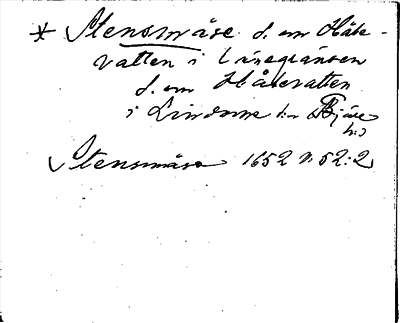 * Stensmåse d. om Håke-
vatten i länsgränsen
d. om Håkevatten
i Lindome sn Bjäre
hd
Stensmåsa 1652 n. 52:2